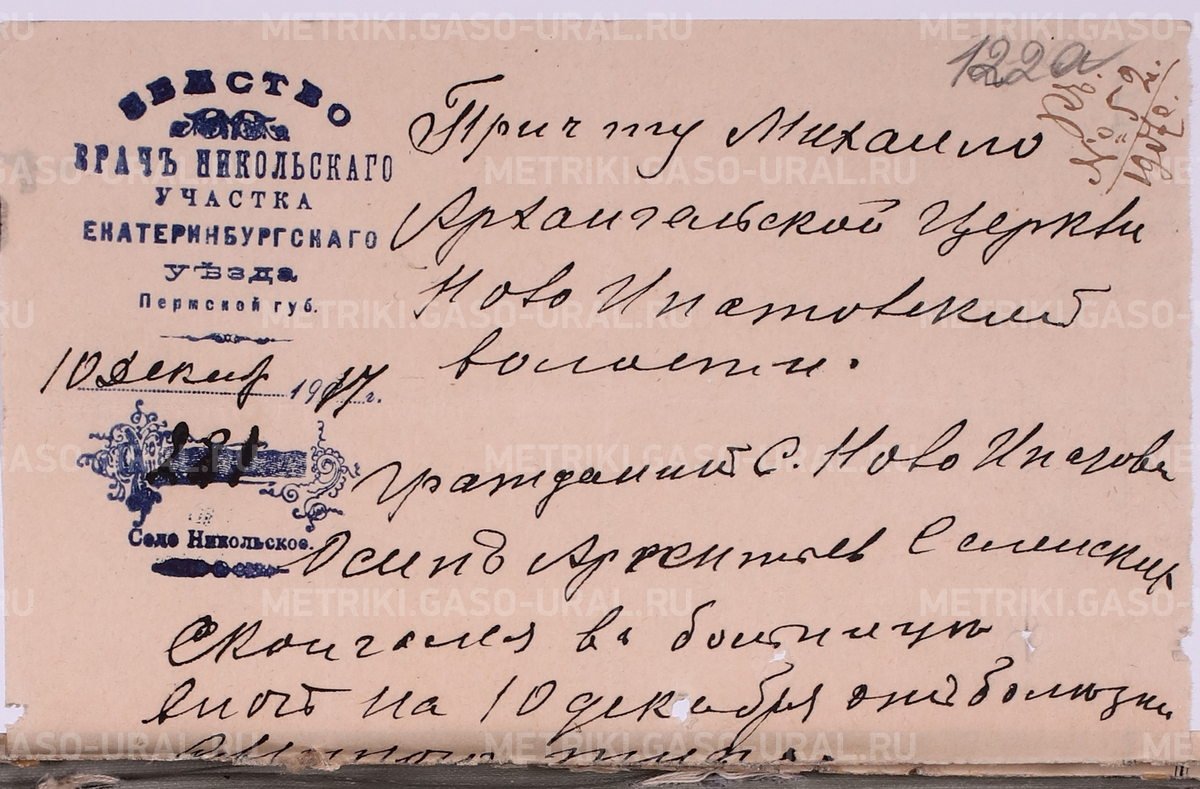 122а
№ 52
1917 г.
ЗЕМСТВО
ВРАЧЪ НИКОЛЬСКАГО
УЧАСТКА
ЕКАТЕРИНБУРГСКАГО
УѢЗДА
Пермской губ.
10 Декаб 1917 г.
Село Никольское.
Причту Михаило
Архангельской Церкви
Ново Ипатовской
волости.
Гражданинъ С. Ново Ипатова
Осипъ
Скончался въ больницѣ
на 10 декабря отъ болѣзни
METRIKI.GASO-URAL.RU